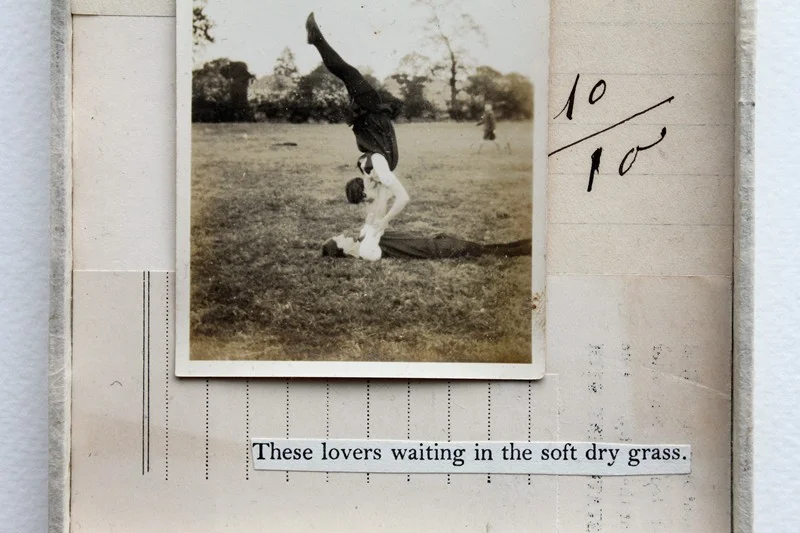 10/10
These lovers waiting in the soft dry grass.